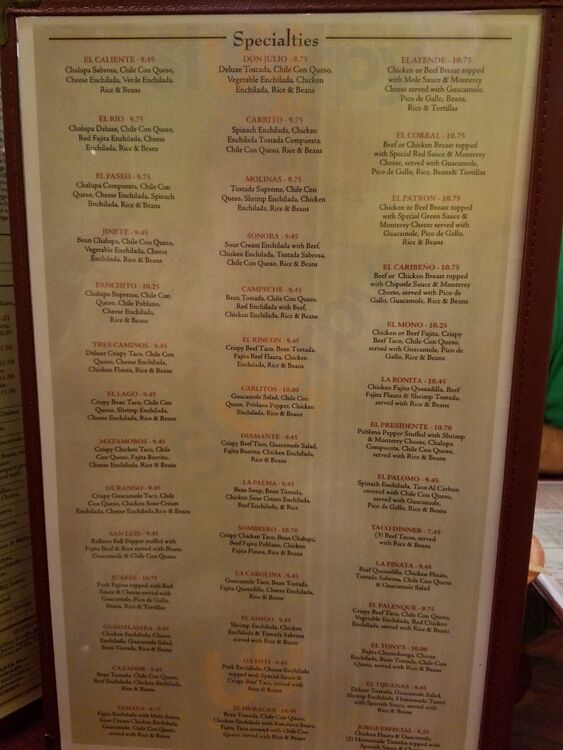 Specialties
EL CALIENTE - 9.45
Chalupa Sabrosa, Chile Con Queso,
Cheese Enchilada, Verde Enchilada,
Rice & Beans
EL RIO - 9.75
Chalupa Deluxe, Chile Con Queso,
Red Fajita Enchilada, Cheese
Enchilada, Rice & Beans
EL PASEO - 9.75
Chalupa Compuesta, Chile Con
Queso, Cheese Enchilada, Spinach
Enchilada, Rice & Beans
JINETE - 9.45
Bean Chalupa, Chile Con Queso,
Vegetable Enchilada, Cheese
Enchilada, Rice & Beans
PANCHITO - 10.25
Chalupa Supreme, Chile Con
Queso, Chile Poblano,
Cheese Enchilada,
Rice & Beans
TRES CAMINOS - 9.45
Deluxe Crispy Taco, Chile Con
Queso, Cheese Enchilada,
Chicken Flauta, Rice & Beans
EL LAGO - 9.45
Crispy Bean Taco, Chile Con
Queso, Shrimp Enchilada,
Cheese Enchilada, Rice & Beans
MATAMOROS - 9.45
Crispy Chicken Taco, Chile
Con Queso, Fajita Burrito,
Cheese Enchilada, Rice & Beans
DURANGO - 9.45
Crispy Guacamole Taco, Chile
Con Queso, Chicken Sour Cream
Enchilada, Cheese Enchilada, Rice & Beans
SAN LUIS - 9.45
Relleno Bell Pepper stuffed with
Fajita Beef & Rice served with Beans,
Guacamole & Chile Con Queso
JUAREZ - 10.75
Pork Fajitas topped with Red
Sauce & Cheese served with
Guacamole, Pico de Gallo,
Beans, Rice & Tortillas
GUADALAJARA - 9.45
Chicken Enchilada, Cheese
Enchilada, Guacamole Salad,
Bean Tostada, Rice & Beans
CAZADOR - 9.45
Bean Tostada, Chile Con Queso,
Beef Enchilada, Chicken Enchilada,
Rice & Beans
TAMAYO - 9.75
Fajita Enchilada with Mole Sauce,
Sour Cream Enchilada,
Guacamole, Chile Con Queso,
served with Rice & Beans
DON JULIO - 9.75
Deluxe Tostada, Chile Con Queso,
Vegetable Enchilada, Chicken
Enchilada, Rice & Beans
CARRITO - 9.75
Spinach Enchilada, Chicken
Enchilada Tostada Compuesta,
Chile Con Queso, Rice & Beans
MOLINAS - 9.75
Tostada Supreme, Chile Con
Queso, Shrimp Enchilada, Chicken
Enchilada, Rice & Beans
SONORA - 9.45
Sour Cream Enchilada with Beef,
Chicken Enchilada, Tostada Sabrosa,
Chile Con Queso, Rice & Beans
CAMPECHE - 9.45
Bean Tostada, Chile Con Queso,
Red Enchilada with Beef,
Chicken Enchilada, Rice & Beans
EL RINCON - 9.45
Crispy Beef Taco, Bean Tostada,
Fajita Beef Flauta, Chicken
Enchilada, Rice & Beans
CARLITOS - 10.00
Guacamole Salad, Chile Con
Queso, Poblano Pepper, Chicken
Enchilada, Rice & Beans
DIAMANTE - 9.45
Crispy Beef Taco, Guacamole Salad,
Fajita Burrito, Chicken Enchilada,
Rice & Beans
LA PALMA - 9.45
Bean Soup, Bean Tostada,
Chicken Sour Cream Enchilada,
Beef Enchilada, & Rice
SOMBRERO - 10.70
Crispy Chicken Taco, Bean Chalupa,
Beef Fajita Poblano, Chicken
Fajita Flauta, Rice & Beans
LA CAROLINA - 9.45
Guacamole Taco, Bean Tostada,
Fajita Quesadilla, Cheese Enchilada,
Rice & Beans
EL AMIGO - 9.45
Shrimp Enchilada, Chicken
Enchilada & Tostada Sabrosa
served with Rice & Beans
OXTOTE - 9.45
Pork Enchilada, Cheese Enchilada
topped with Special Sauce &
Crispy Beef Taco, served with
Rice & Beans
EL HURACAN - 10.45
Bean Tostada, Chile Con Queso,
Chicken Enchilada with Ranchera Sauce,
Fajita Taco covered with Chile Con
Queso, served with Rice & Beans
EL AYENDE - 10.75
Chicken or Beef Breast topped
with Mole Sauce & Monterey
Cheese served with Guacamole,
Pico de Gallo, Beans,
Rice & Tortillas
EL CORRAL - 10.75
Beef or Chicken Breast topped
with Special Red Sauce & Monterey
Cheese, served with Guacamole,
Pico de Gallo, Rice, Beans& Tortillas
EL PATRON - 10.75
Chicken or Beef Breast topped
with Special Green Sauce &
Monterey Cheese served with
Guacamole, Pico de Gallo,
Rice & Beans
EL CARIBEÑO - 10.75
Beef or Chicken Breast topped
with Chipotle Sauce & Monterey
Cheese, served with Pico de
Gallo, Guacamole, Rice & Beans
EL MONO - 10.25
Chicken or Beef Fajita, Crispy
Beef Taco, Chile Con Queso,
served with Guacamole, Pico de
Gallo, Rice & Beans
LA BONITA - 10.45
Chicken Fajita Quesadilla, Beef
Fajita Flauta & Shrimp Tostada,
served with Rice & Beans
EL PRESIDENTE - 10.70
Poblano Pepper Stuffed with Shrimp
& Monterey Cheese, Chalupa
Compuesta, Chile Con Queso,
served with Rice & Beans
EL PALOMO - 9.45
Spinach Enchilada, Taco Al Carbon
covered with Chile Con Queso,
served with Guacamole,
Pico de Gallo, Rice & Beans
TACO DINNER - 7.45
(3) Beef Tacos, served
with Rice & Beans
LA PIÑATA - 9.45
Beef Quesadilla, Chicken Flauta,
Tostada Sabrosa, Chile Con Queso
& Guacamole Salad
EL PALENQUE - 9.75
Crispy Beef Taco, Chile Con Queso,
Vegetable Enchilada, Red Chicken
Enchilada, served with Rice & Beans
EL TONY'S - 10.00
Fajita Chimichanga, Cheese
Enchilada, Bean Tostada, Chile Con
Queso, served with Rice & Beans
EL TIJUANAS - 9.45
Deluxe Tostada, Guacamole Salad,
Shrimp Enchilada, Homemade Tamal
with Spanish Sauce, served with
Rice & Beans
JORGE ESPECIAL - 8.25
Chicken Flauta & Guacamole,
(2) Homemade Tamales topped with